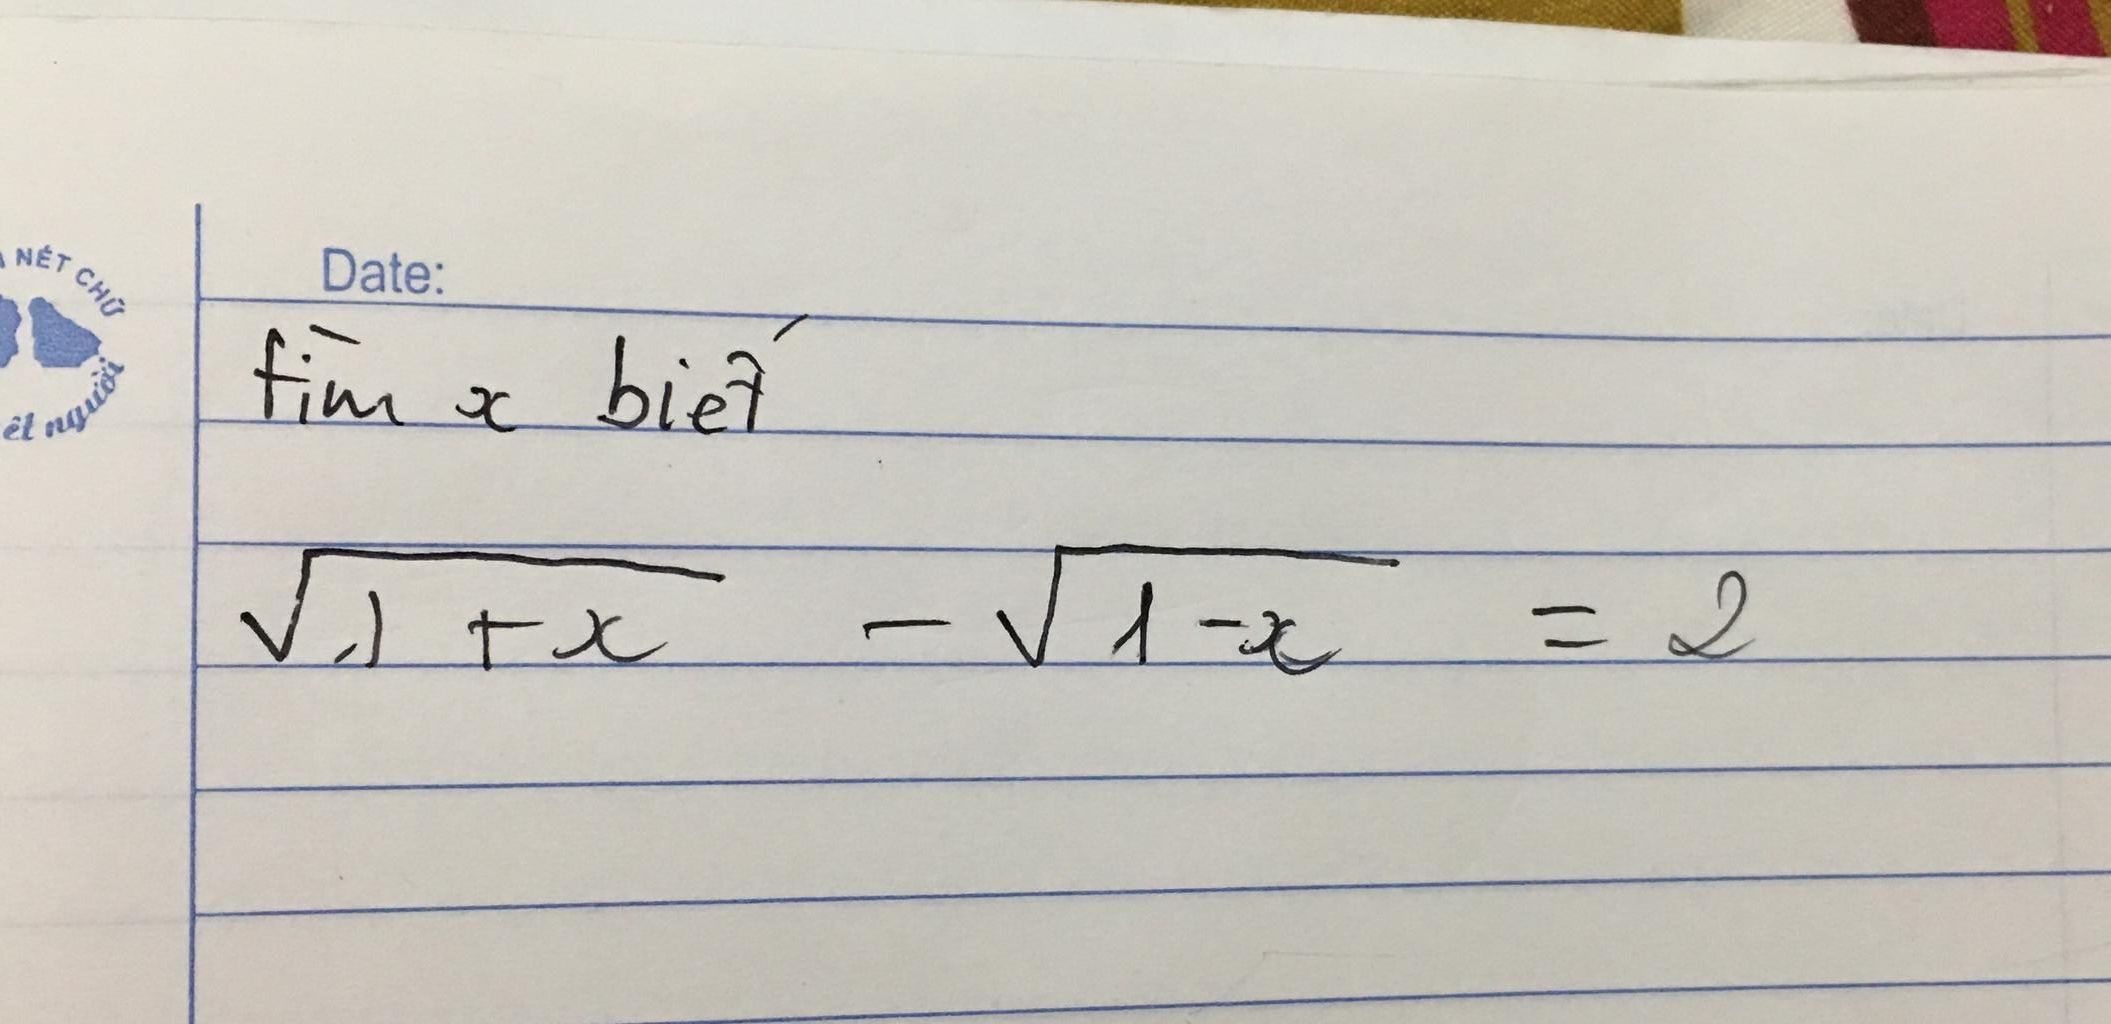 NÉT CHỮ
ết người
Date:
tìm x biết
√1 + x - √1 - x = 2